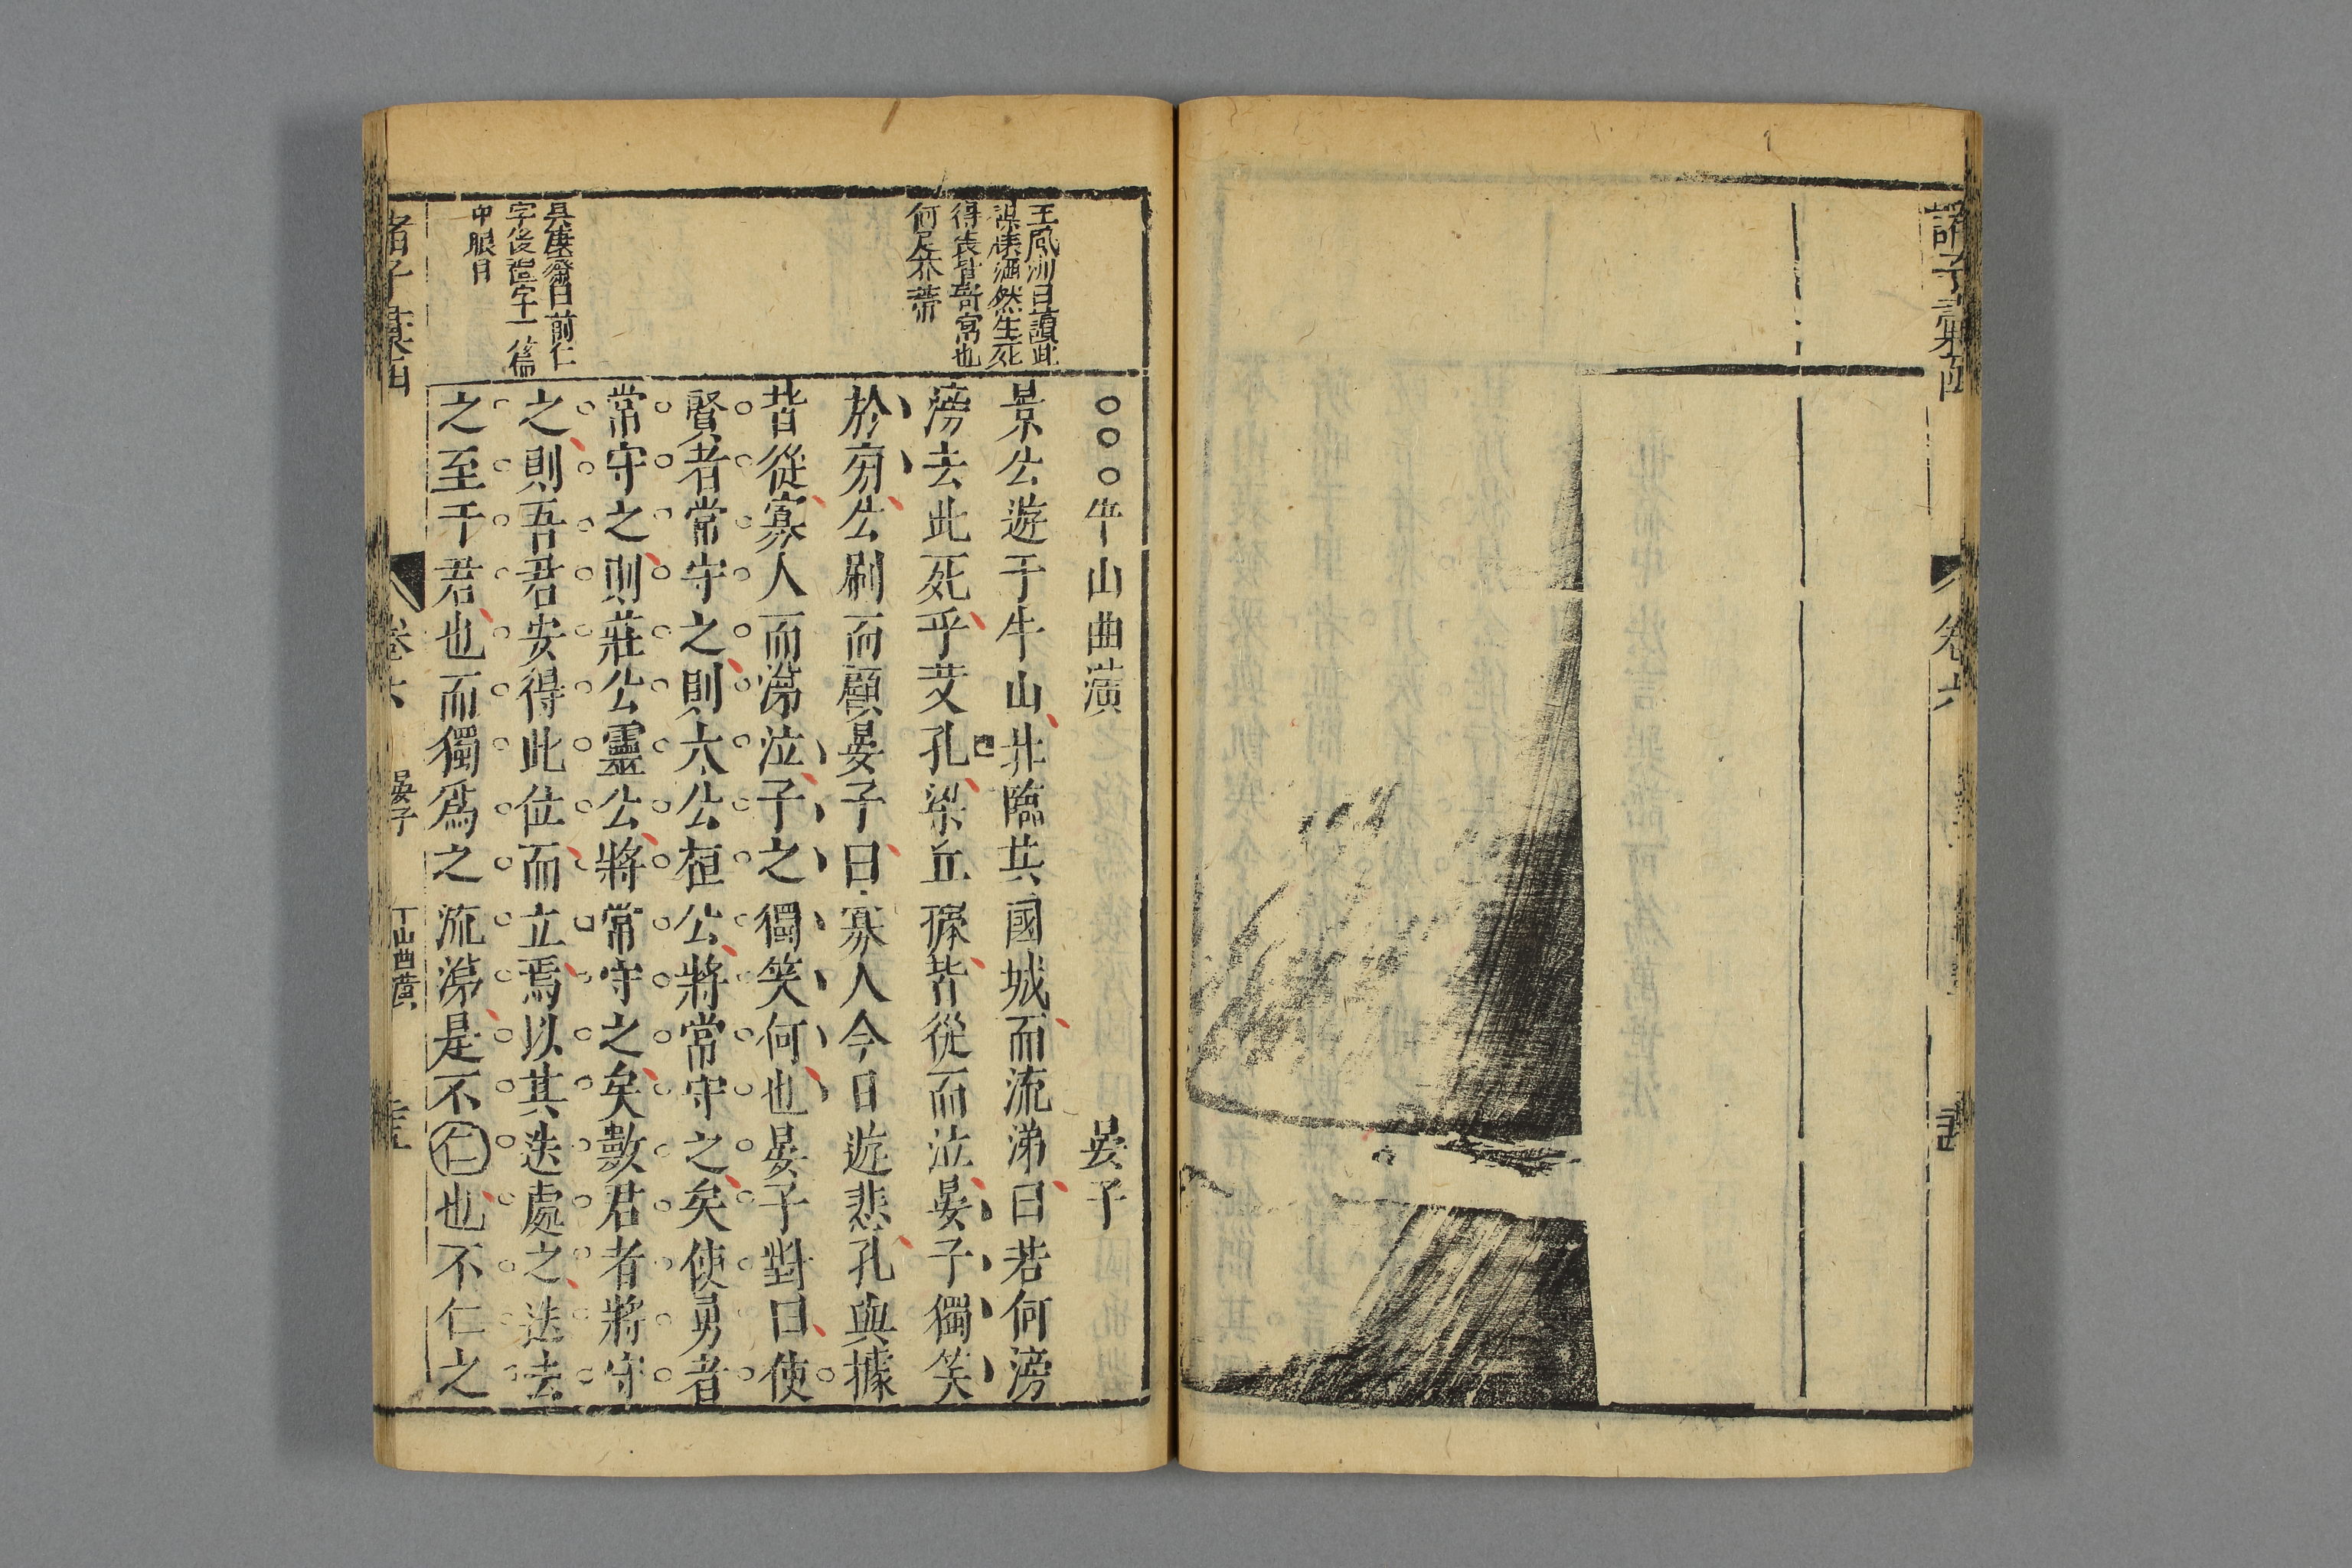 卷六
○○○牛山曲潢 晏子
景公遊于牛山北臨其國城而流涕曰若何滂
滂去此死乎艾孔梁丘據皆從而泣晏子獨笑
於旁公刷而顧晏子曰寡人今日遊悲孔與據
皆從寡人而涕泣子之獨笑何也晏子對曰使
賢者常守之則太公桓公將常守之矣使勇者
常守之則莊公靈公將常守之矣數君者將守
之則吾君安得此位而立焉以其迭處之迭去
之至于君也而獨爲之流涕是不仁也不仁之
王鳳洲曰讀此
謀樣洒然生死
得喪皆尋常也
何足芥蒂
吳廬齋曰前仁
字後諂字一篇
中眼目
卷六
晏子
牛山曲潢